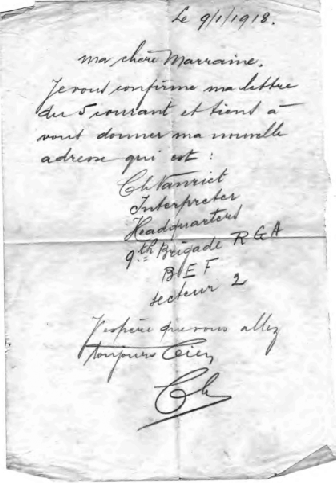 Le 9/1/1918.
Ma chère Marraine.
Je vous confirme ma lettre
du 5 courant et tiens à
vous donner ma nouvelle
adresse qui est :
Ch Vanriet
Interpreter
Headquarters
9th Brigade RGA
BEF
secteur 2
J'espère que vous allez
toujours bien
Ch